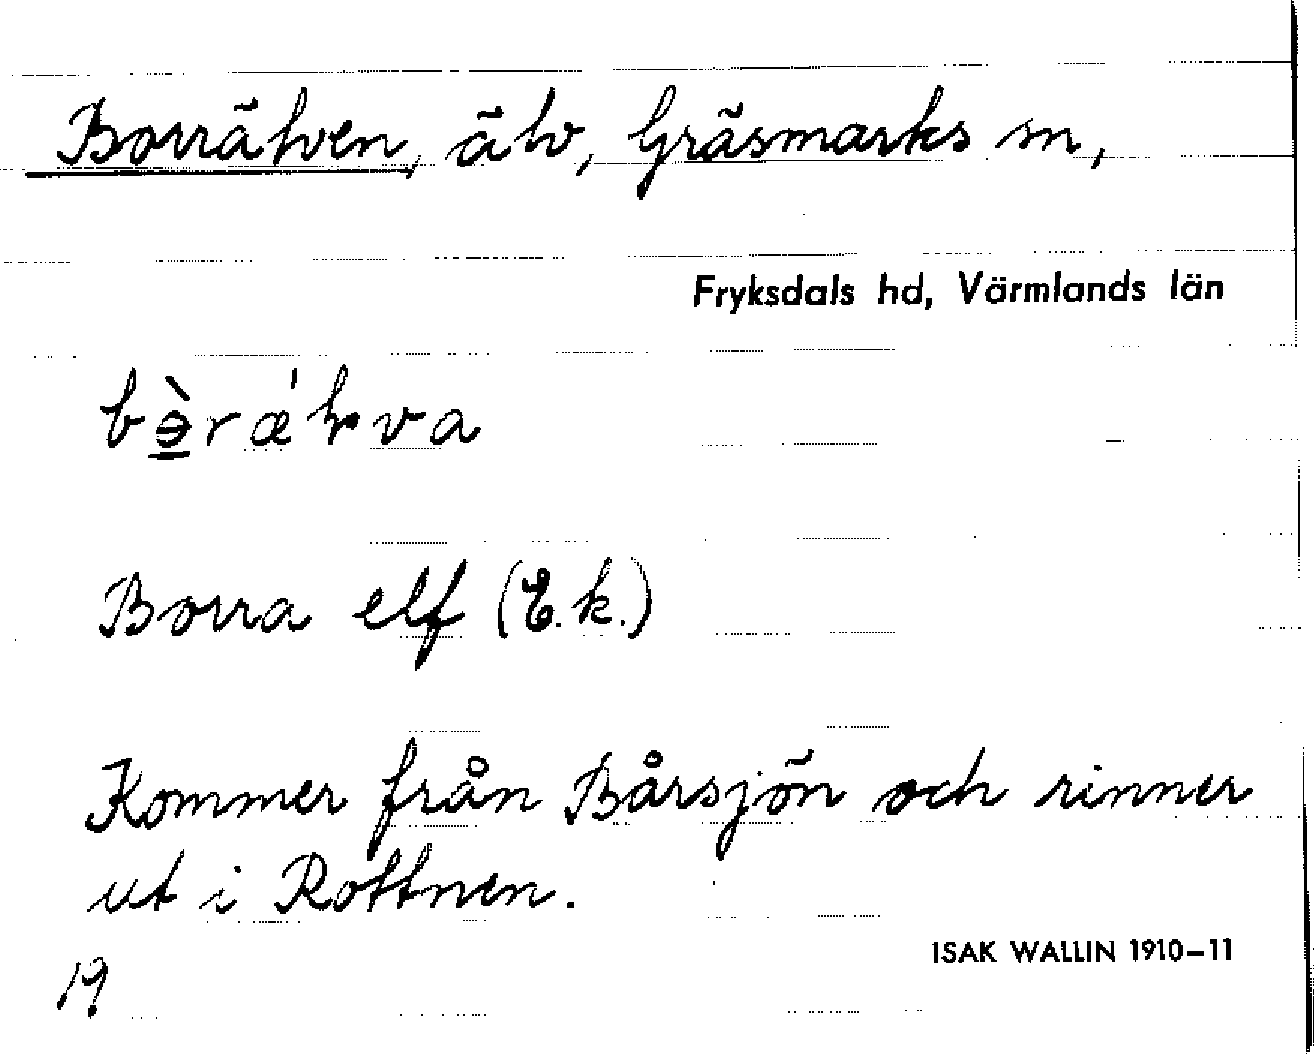 Borrälven, älv, Gräsmarks sn,
Fryksdals hd, Värmlands län
Borra elf (E.k.)
Kommer från Bårsjön och rinner
ut i Rottnen.
ISAK WALLIN 1910–11
19